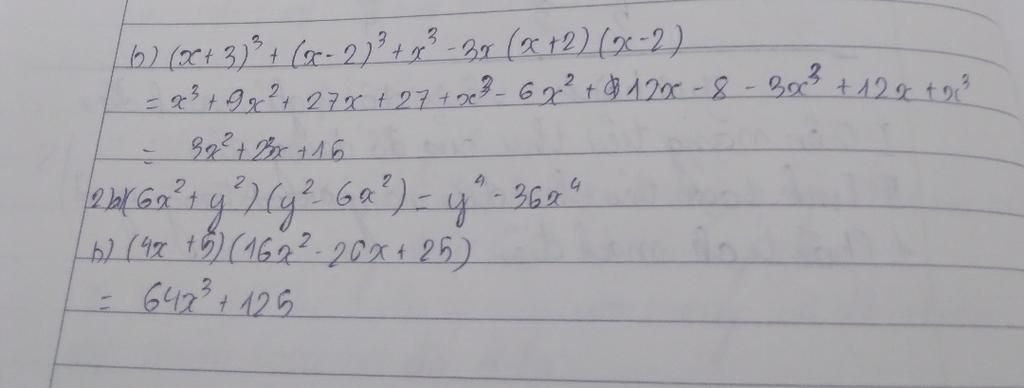 b) (x+3)³ + (x-2)³ + x³ - 3x (x+2) (x-2)
= x³ + 9x² + 27x + 27 + x³ - 6x² + 12x - 8 - 3x³ + 12x + x³
= 3x² + 23x + 16
2b) (6x² + y²) (y² - 6x²) = y⁴ - 36x⁴
b) (4x + 5) (16x² - 26x + 25)
= 64x³ + 125